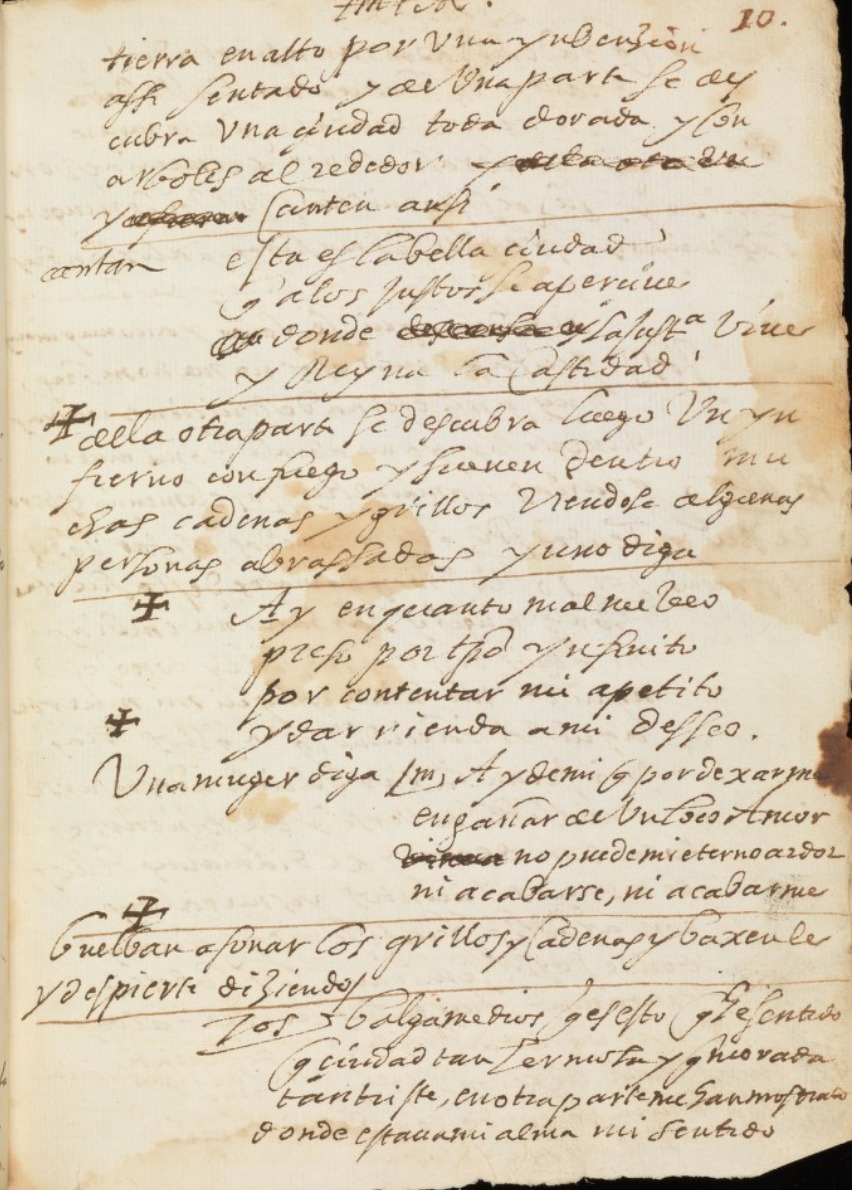 10.
tierra en alto por Una ynbenzion
assi sentado y de Una parte se des
cubra Una ciudad toda dorada y con
arboles al rededor y
y canten ansi
cantan esta es la bella ciudad
q a los justos se apercive
donde la justa vive
y Reyna la Castidad
della otra parte se descubra luego Un yn
fierno con fuego y suenen dentro mu
chas cadenas y grillos viendose algunas
personas abrassadas y uno diga
Ay en quanto mal me veo
preso por tpo ynfinito
por contentar mi apetito
y dar rienda a mi desseo.
Una muger diga Ay de mi q por dexarme
engañar de Un loco Amor
no puede mi eterno ardor
ni acabarse, ni acabarme
buelban a sonar los grillos y Cadenas y baxenle
y despierte diziendo
Jos balgame dios q es esto q he sentido
q ciudad tan hermosa y q morada
tan triste, en otra parte me han mostrado
donde estava mi alma mi sentido